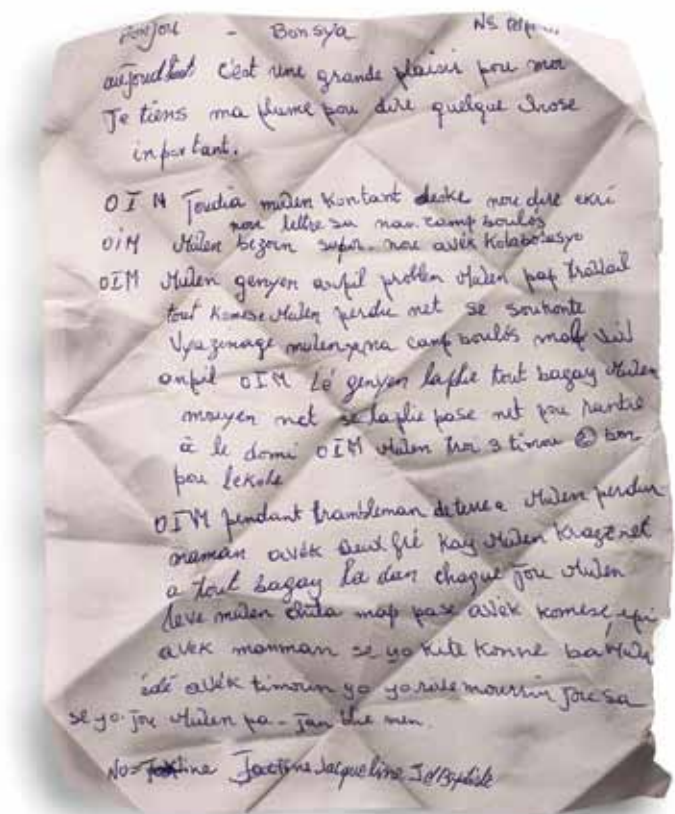 Bonjou - Bonsya NS
aujoud c'est une grande plaisir pou moi
Je tiens ma plume pou dire quelque chose
inportant.
OIM Joudia mulen kontant deske nou dire ekri
nou lettre sa nan camp boulos
OIM Mulen bezoin supor nou avék kolaborasyo
OIM Mulen genyen anpil problem Mulen pap travail
tout komése Mulen perdu net se souhonte
mulen na camp boulos map viv
anpil OIM Lé genyen laplie tout bagay Mulen
mouyen net se laplie pase net pou rantré
a le domi OIM Mulen 3 timou bon
pou lekole
OIM pendant trambleman de terre a Mulen perdu
maman avék deux fré kay Mulen kraze net
a tout bagay la dan chaque jou Mulen
leve mulen chita map pase avék komése epi
avek manman se yo kite konne ba Mulen
édé avék timoun yo yo mourrin jou sa
se yo jou Mulen pa - jan the men.
No= Jacqueline